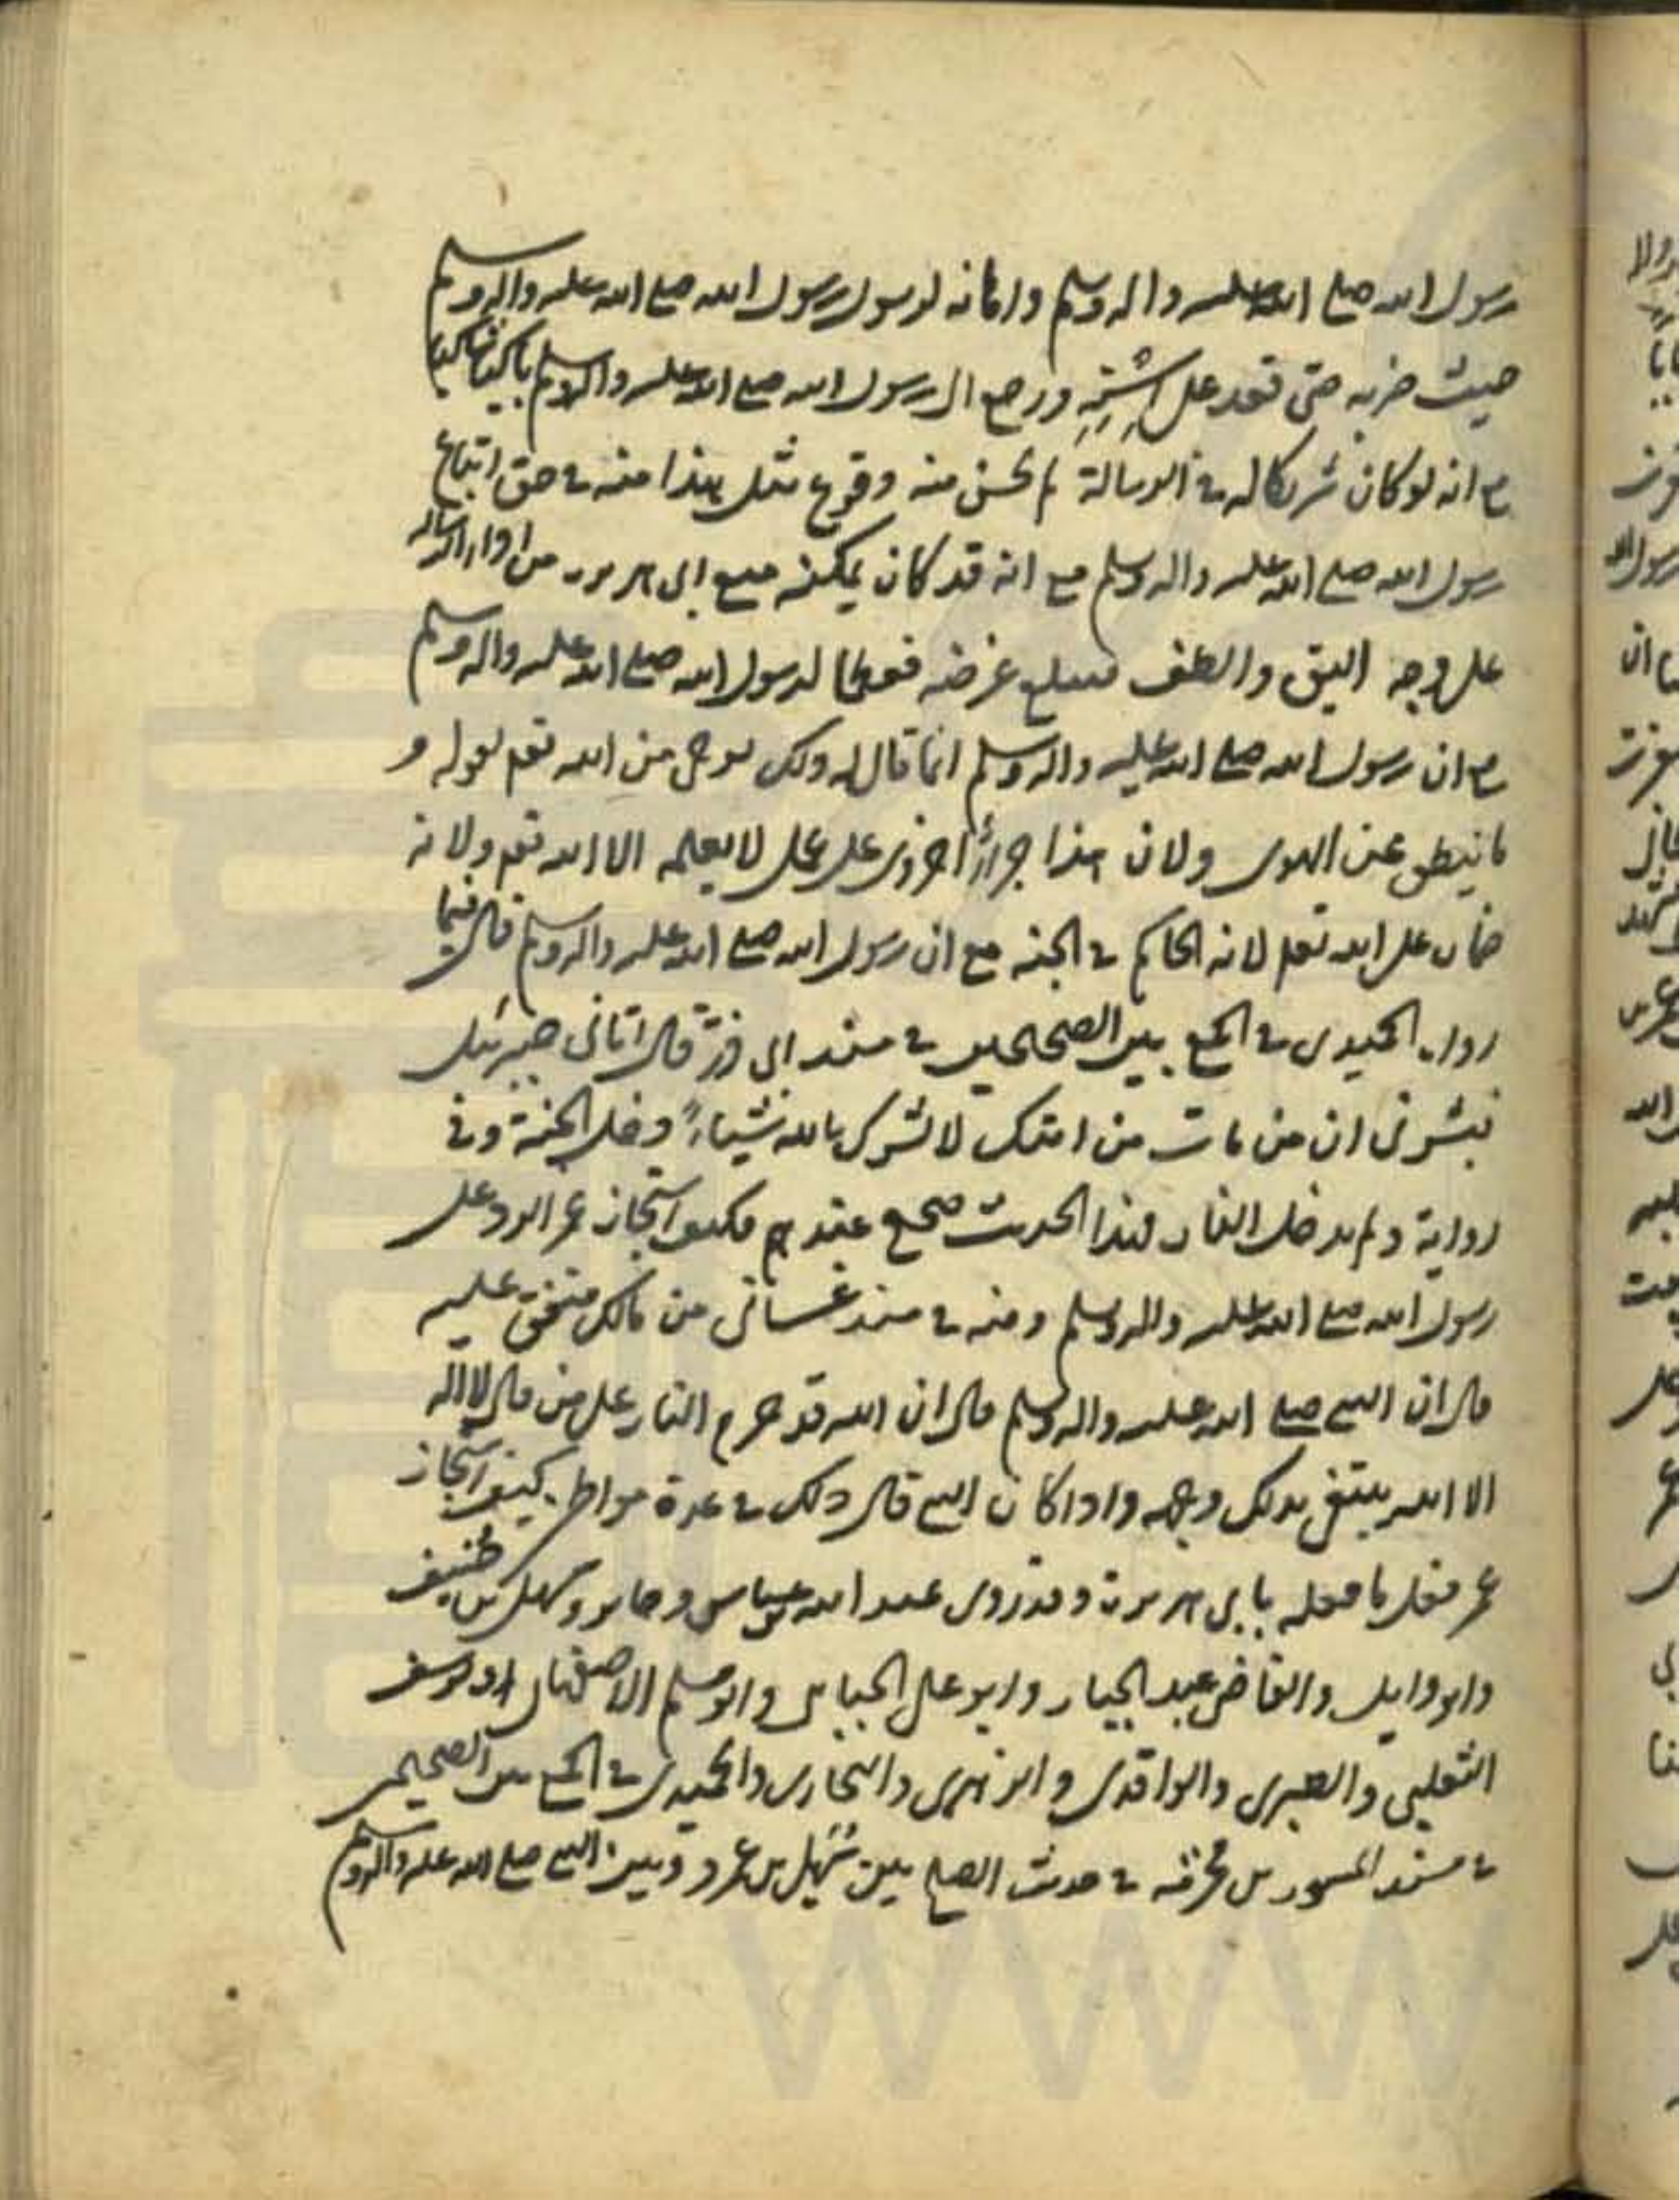 رسول الله صلى الله عليه واله وسلم واهانه لرسول رسول الله صلى الله عليه واله وسلم
حيث ضربه حتى قعد على استه ورجع الى رسول الله صلى الله عليه واله وسلم باكيا شاكيا
مع انه لو كان شريكا له في الرسالة لم يحسن منه وقوع مثل هذا منه في حق اتباع
رسول الله صلى الله عليه واله وسلم مع انه قد كان يمكنه منع ابى هريره من اداء الرساله
على وجه اليق والطف فيبلغ غرضه لرسول الله صلى الله عليه واله وسلم
مع ان رسول الله صلى الله عليه واله وسلم انما قال له ذلك بوحى من الله تعم لقوله و
ما ينطق عن الهوى ولان هذا جزاء اخروى على عمل لا يعلمه الا الله تعم ولانه
ضمان على الله تعم لانه الحاكم في الجنه مع ان رسول الله صلى الله عليه واله وسلم قال فيما
رواه الحميدى في الجمع بين الصحيحين في مسند ابى ذر قال اتانى جبرئيل
فبشرنى ان من مات من امتك لا يشرك بالله شيئاً دخل الجنة وفى
رواية ولم يدخل النار فهذا الحديث صحيح عندهم فكيف استجاز عمر الرد على
رسول الله صلى الله عليه واله وسلم ومنه في مسند غسانى من مالك متفق عليه
قال ان النبى صلى الله عليه واله وسلم قال ان الله قد حرم النار على من قال لا اله
الا الله يبتغى بذلك وجهه واذا كان النبى قال ذلك في عدة مواطن كيف استجاز
عمر فعل ما فعله بابى هريرة وقد روى عبد الله بن عباس وجابر وسهل بن حنيف
وابو وايل والقاضى عبد الجبار وابو على الجبايى وابو مسلم الاصفهانى ويوسف
الثعلبى والطبرى والواقدى والزهرى والبخارى والحميدى في الجمع بين الصحيحين
في مسند المسور بن مخرمه في حديث الصلح بين سُهيل بن عمرو وبين النبى صلى الله عليه واله وسلم